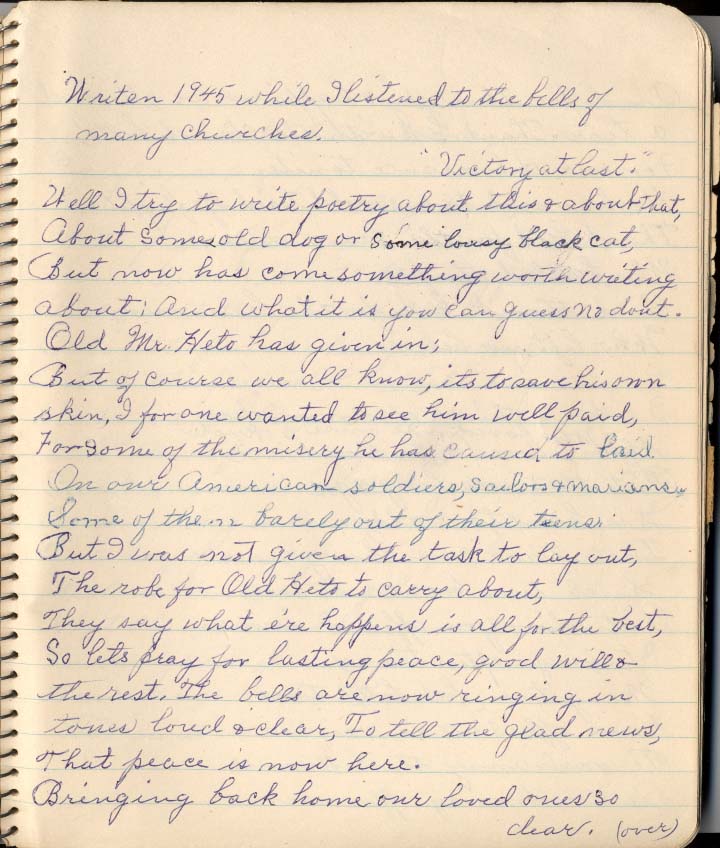 Writen 1945 while I listened to the bells of
many churches.
"Victory at last."
Well I try to write poetry about this & about that,
About some old dog or some lousy black cat,
But now has come something worth writing
about; And what it is you can guess no dout.
Old Mr. Heto has given in;
But of course we all know, its to save his own
skin, I for one wanted to see him well paid,
For some of the misery he has caused to laid
On our American soldiers, sailors & marians.
Some of them barely out of their teens.
But I was not given the task to lay out,
The robe for Old Heto to carry about,
They say what e're happens is all for the best,
So lets pray for lasting peace, good will &
the rest. The bells are now ringing in
tones loud & clear, To tell the glad news,
That peace is now here.
Bringing back home our loved ones so
dear. (over)